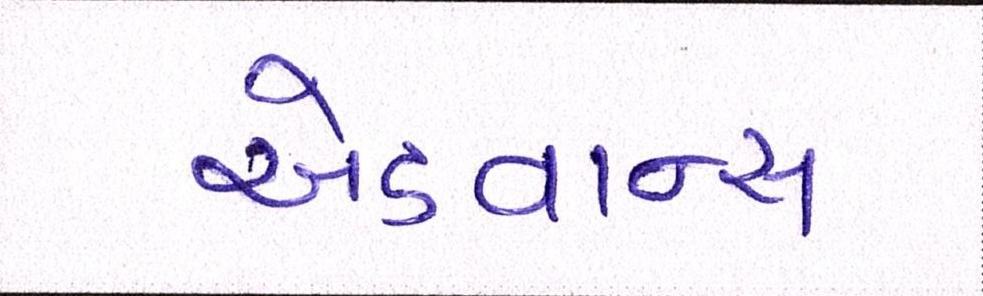 એડવાન્સ